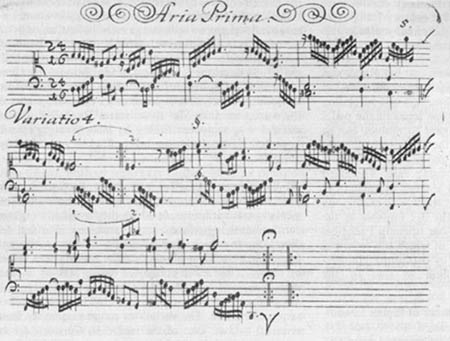 Aria Prima.
24
16
24
16
Variatio 4.